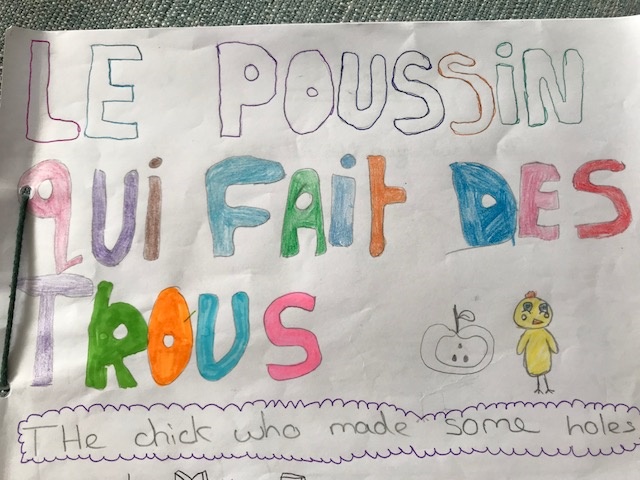 LE POUSSiN
QUi FAit DES
TROUS
THe chick who made some holes